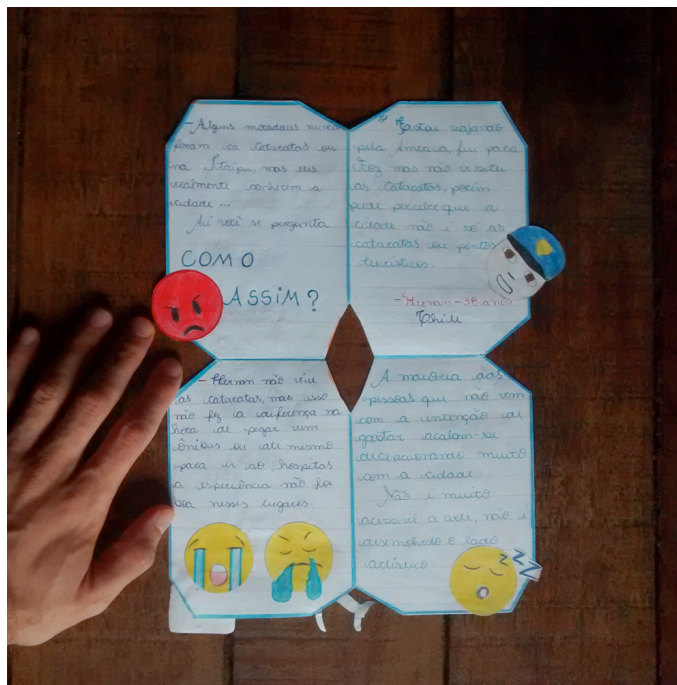 - Alguns moradores nunca
foram as Cataratas ou
na Itaipu, mas eles
realmente conhecem a
cidade ...
Aí você se pergunta
COMO
ASSIM?
" Estou viajando
pela America, fui para
Foz mas não visitei
as Cataratas, porém
pude perceber que a
cidade não é só as
cataratas ou pontos
turísticos.
- Hernan - 38 anos
Chile
- Hernan não viu
as cataratas, mas isso
não fez a diferença na
hora de pegar um
ônibus ou até mesmo
para ir ao hospital
a experiência não foi
boa nesses lugares.
A maioria das
pessoas que não vem
com a intenção de
gastar acabam se
decepcionando muito
com a cidade.
Não é muito
acessível a arte, não é
desenvolvido o lado
artístico
z z z